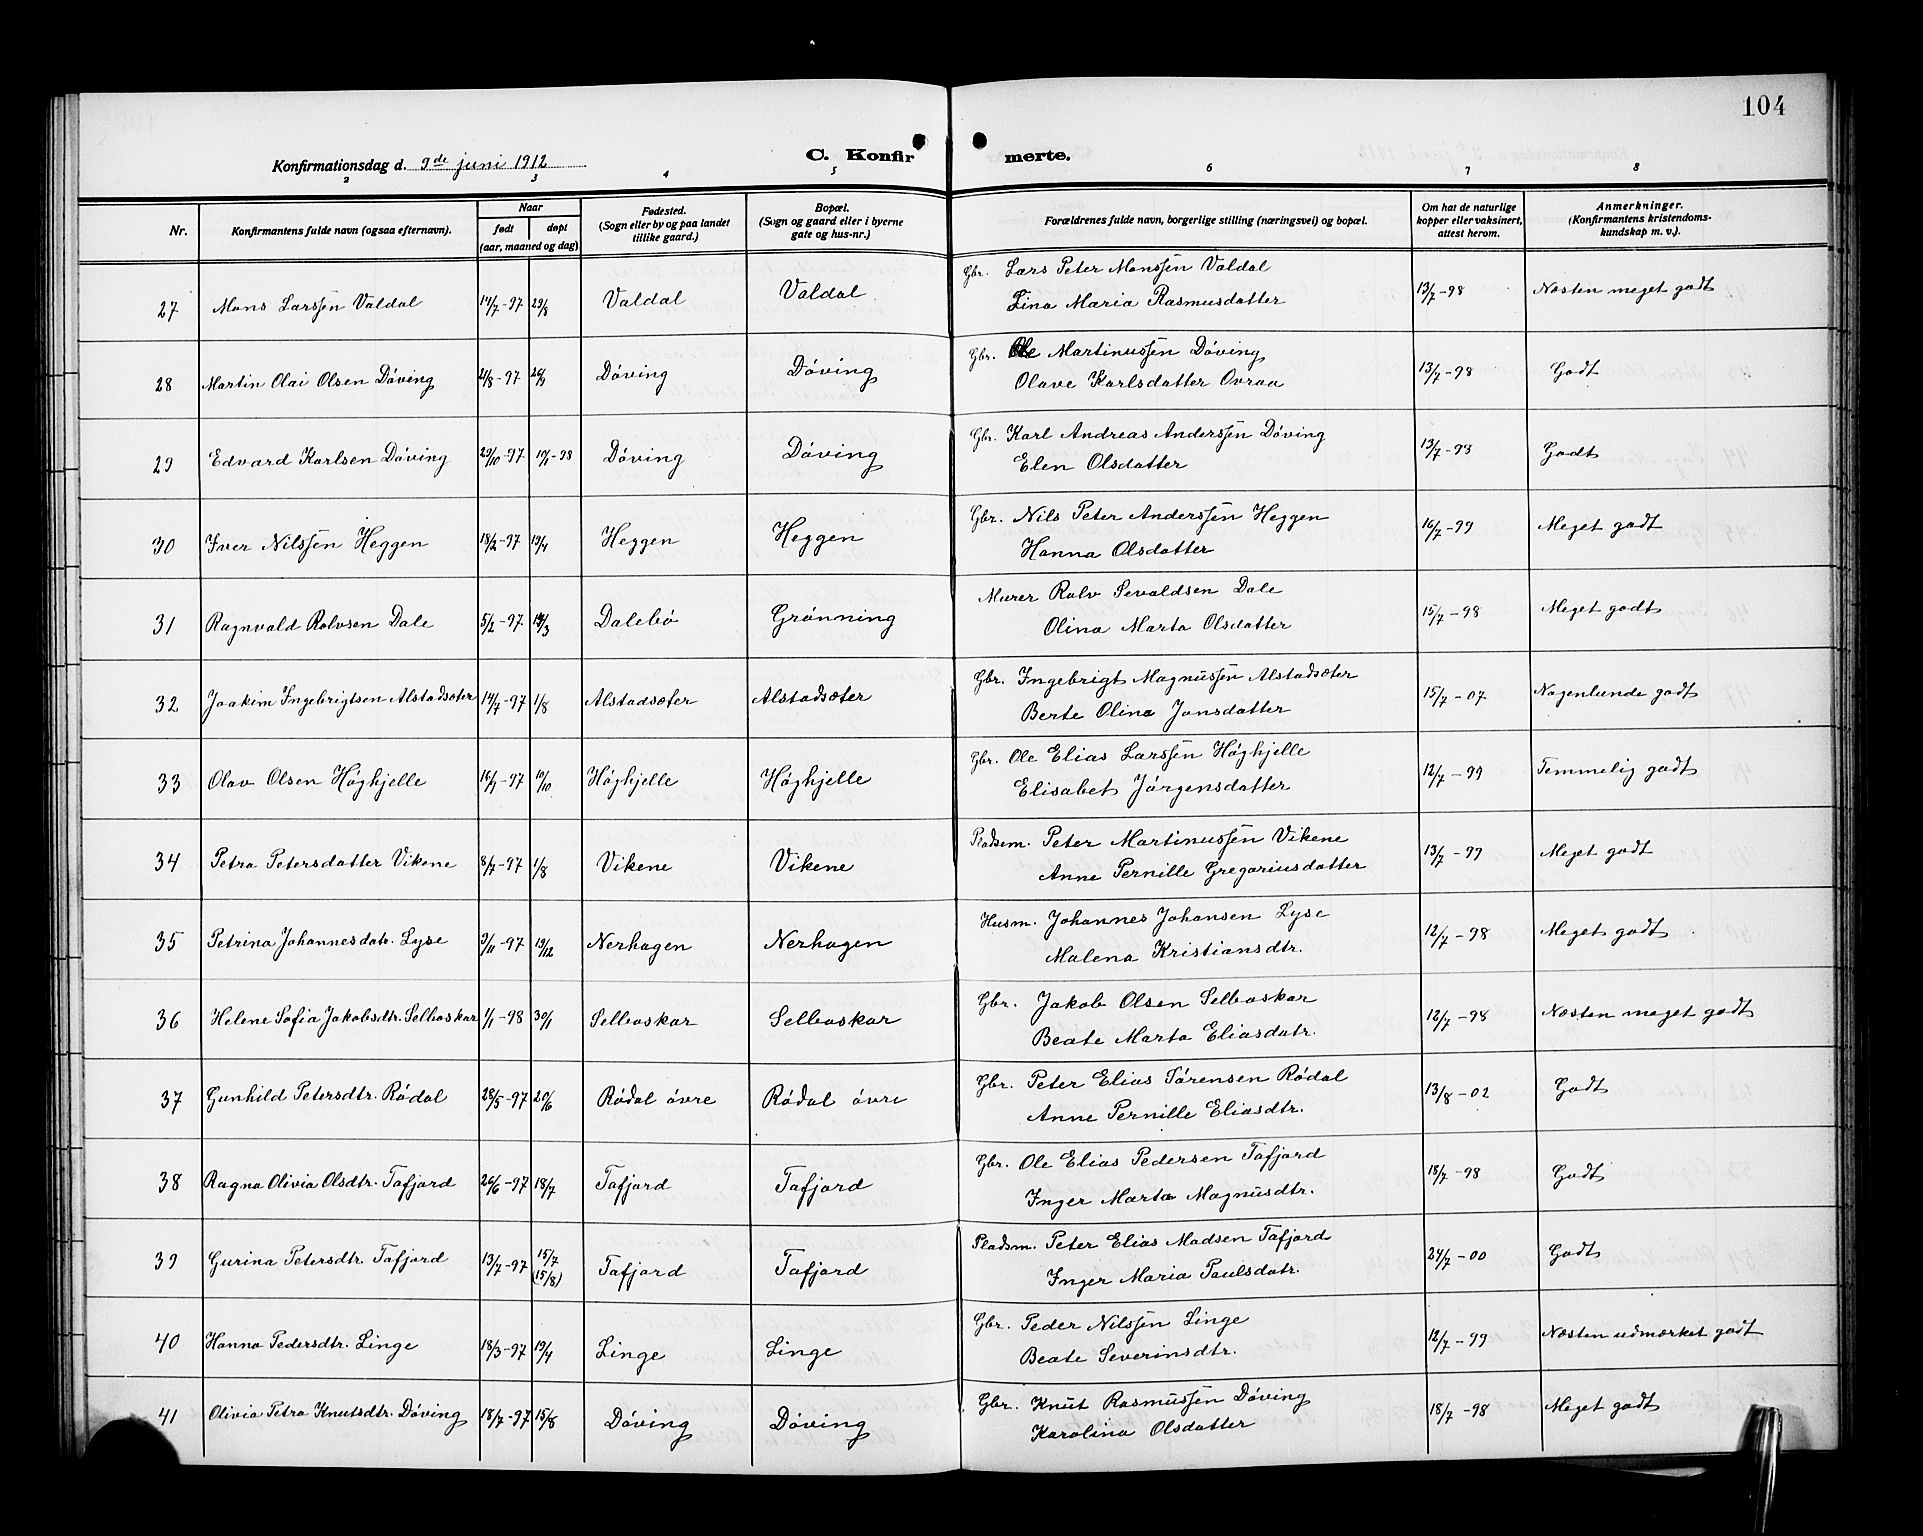 104
Konfirmationsdag d. 9de juni 1912
C. Konfirmerte.
2 3 4 5 6 7 8
Nr.
Konfirmantens fulde navn (ogsaa efternavn).
Naar
født døpt
(aar, maaned og dag)
Fødested.
(Sogn eller by og paa landet
tillike gaard.)
Bopæl.
(Sogn og gaard eller i byerne
gate og hus-nr.)
Forældrenes fulde navn, borgerlige stilling (næringsvei) og bopæl.
Om hat de naturlige
kopper eller vaksinert,
attest herom.
Anmerkninger.
(Konfirmantens kristendoms-
kundskap m. v.).
27 Mons Larssen Valdal 14/7-97 29/8 Valdal Valdal Gbr. Lars Peter Monssen Valdal 13/7-98 Næsten meget godt
Lina Maria Rasmusdatter
28 Martin Olai Olsen Döving 21/8-97 26/9 Döving Döving Gbr. Ole Martinussen Döving 13/7-98 Godt
Olave Karlsdatter Ovraa
29 Edvard Karlsen Döving 29/10-97 10/1-98 Döving Döving Gbr. Karl Andreas Anderssen Döving 13/7-98 Godt
Elen Olsdatter
30 Iver Nilssen Heggen 18/2-97 19/4 Heggen Heggen Gbr. Nils Peter Anderssen Heggen 16/7-99 Meget godt
Hanna Olsdatter
31 Ragnvald Rolvsen Dale 5/2-97 14/3 Dalebö Grönning Murer Rolv Sevaldsen Dale 15/7-98 Meget godt
Olina Marta Olsdatter
32 Joakim Ingebrigtsen Alstadsæter 14/7-97 1/8 Alstadsæter Alstadsæter Gbr. Ingebrigt Magnussen Alstadsæter 15/7-07 Nogenlunde godt
Berte Olina Jonsdatter
33 Olav Olsen Höghjelle 16/9-97 10/10 Höghjelle Höghjelle Gbr. Ole Elias Larssen Höghjelle 12/7-99 Temmelig godt
Elisabet Jörgensdatter
34 Petra Petersdatter Vikene 8/7-97 1/8 Vikene Vikene Pladsm. Peter Martinussen Vikene 13/7-99 Meget godt
Anne Pernille Gregoriusdatter
35 Petrina Johannesdatr. Lyse 9/11-97 19/12 Nerhagen Nerhagen Husm. Johannes Johansen Lyse 12/7-98 Meget godt
Malena Kristiansdtr.
36 Helene Sofia Jakobsdtr. Selboskar 1/1-98 30/1 Selboskar Selboskar Gbr. Jakob Olsen Selboskar 12/7-98 Næsten meget godt
Beate Marta Eliasdatr.
37 Gunhild Petersdtr. Rödal 28/5-97 20/6 Rödal övre Rödal övre Gbr. Peter Elias Törensen Rödal 13/8-02 Godt
Anne Pernille Eliasdtr.
38 Ragna Olivia Olsdtr. Tafjord 26/6-97 18/7 Tafjord Tafjord Gbr. Ole Elias Pedersen Tafjord 18/7-98 Godt
Inger Marta Magnusdtr.
39 Gurina Petersdtr. Tafjord 13/7-97 15/7 (15/8) Tafjord Tafjord Pladsm. Peter Elias Madsen Tafjord 24/7-00 Godt
Inger Maria Paulsdatr.
40 Hanna Pedersdtr. Linge 18/3-97 19/4 Linge Linge Gbr. Peder Nilssen Linge 12/7-99 Næsten udmærket godt
Beate Severinsdtr.
41 Olivia Petra Knutsdtr. Döving 18/7-97 15/8 Döving Döving Gbr. Knut Rasmussen Döving 18/7-98 Meget godt
Karolina Olsdatter